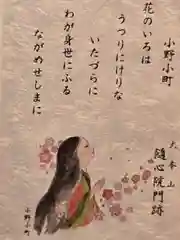 小野小町
花のいろは
うつりにけりな
いたづらに
わが身世にふる
ながめせしまに
大本山
随心院門跡
小野小町